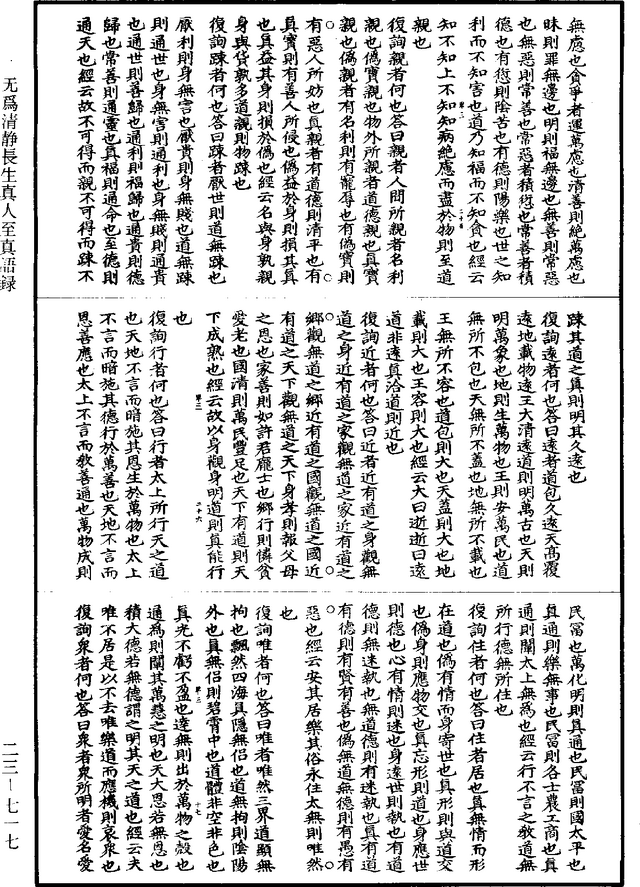 無慮也貪爭者運萬慮也清善則絕萬慮也
昧則罪無邊也明則福無邊也無善則常惡
也無惡則常善也常惡者積愆也常善者積
德也有愆則陰苦也有德則陽樂也世之知
利而不知害也道乃知福而不知貪也經云
知不知上不知知病絕慮而盡於物則至道
親也
復詢親者何也答曰親者人間所親者名利
親也偽寶親也物外所親者道德親也真寶
親也偽親者有名利則有寵辱也有偽寶則
有惡人所妨也真親者有道德則清平也有
真寶則有善人所侵也偽益於身則損其真
也真益其身則損於偽也經云名與身孰親
身與貨孰多道親則物踈也
復詢踈者何也答曰踈者厭世則道無踈也
厭利則身無害也厭貴則身無賤也道無踈
則通世也身無害則通利也身無賤則通貴
也通世則善歸也通利則福歸也通貴則德
歸也常善則通靈也真福則通命也至德則
通天也經云故不可得而親不可得而踈不
踈其道之真則明其久遠也
復詢遠者何也答曰遠者道包久遠天高覆
遠地載物遠王大清遠道則明萬古也天則
明萬象也地則生萬物也王則安萬民也道
無所不包也天無所不蓋也地無所不載也
王無所不容也道包則大也天蓋則大也地
載則大也王容則大也經云大曰逝逝曰遠
道非遠真洽道則近也
復詢近者何也答曰近者近有道之身觀無
道之身近有道之家觀無道之家近有道之
鄉觀無道之鄉近有道之國觀無道之國近
有道之天下觀無道之天下身孝則報父母
之恩也家善則如許君龐士也鄉行則憐貧
愛老也國清則萬民豐足也天下有道則天
下成熟也經云故以身觀身明道則真能行
也
復詢行者何也答曰行者太上所行天之道
也天地不言而暗施其恩生於萬物也太上
不言而暗施其德行於萬善也天地不言而
恩善應也太上不言而教善通也萬物成則
民冨也萬化明則真通也民冨則國太平也
真通則樂無事也民冨則各士農工商也真
通則闡太上無為也經云行不言之教道無
所行德無所住也
復詢住者何也答曰住者居也真無情而形
在道也偽有情而身寄世也真形則與道交
也偽身則應物交也真忘形則道也身應世
則德也心有情則迷也身達世則執也有道
德則無迷執也無道德則有迷執也真有道
有德則有賢有善也偽無道無德則有愚有
惡也經云安其居樂其俗永住太無則唯然
也
復詢唯者何也答曰唯者唯然三界道顯無
拘也飄然四海真隱無侶也道無拘則陰陽
外也真無侶則碧霄中也道體非空非色也
真光不虧不盈也達無則出於萬物之殼也
通為則闡其萬慧之明也天大恩若無恩也
積大德若無德謂之明其天之道也經云夫
唯不居是以不去唯樂道而應機則哀衆也
復詢衆者何也答曰衆者衆所明者愛名愛
无爲清静長生真人至真語録
二三—七一七